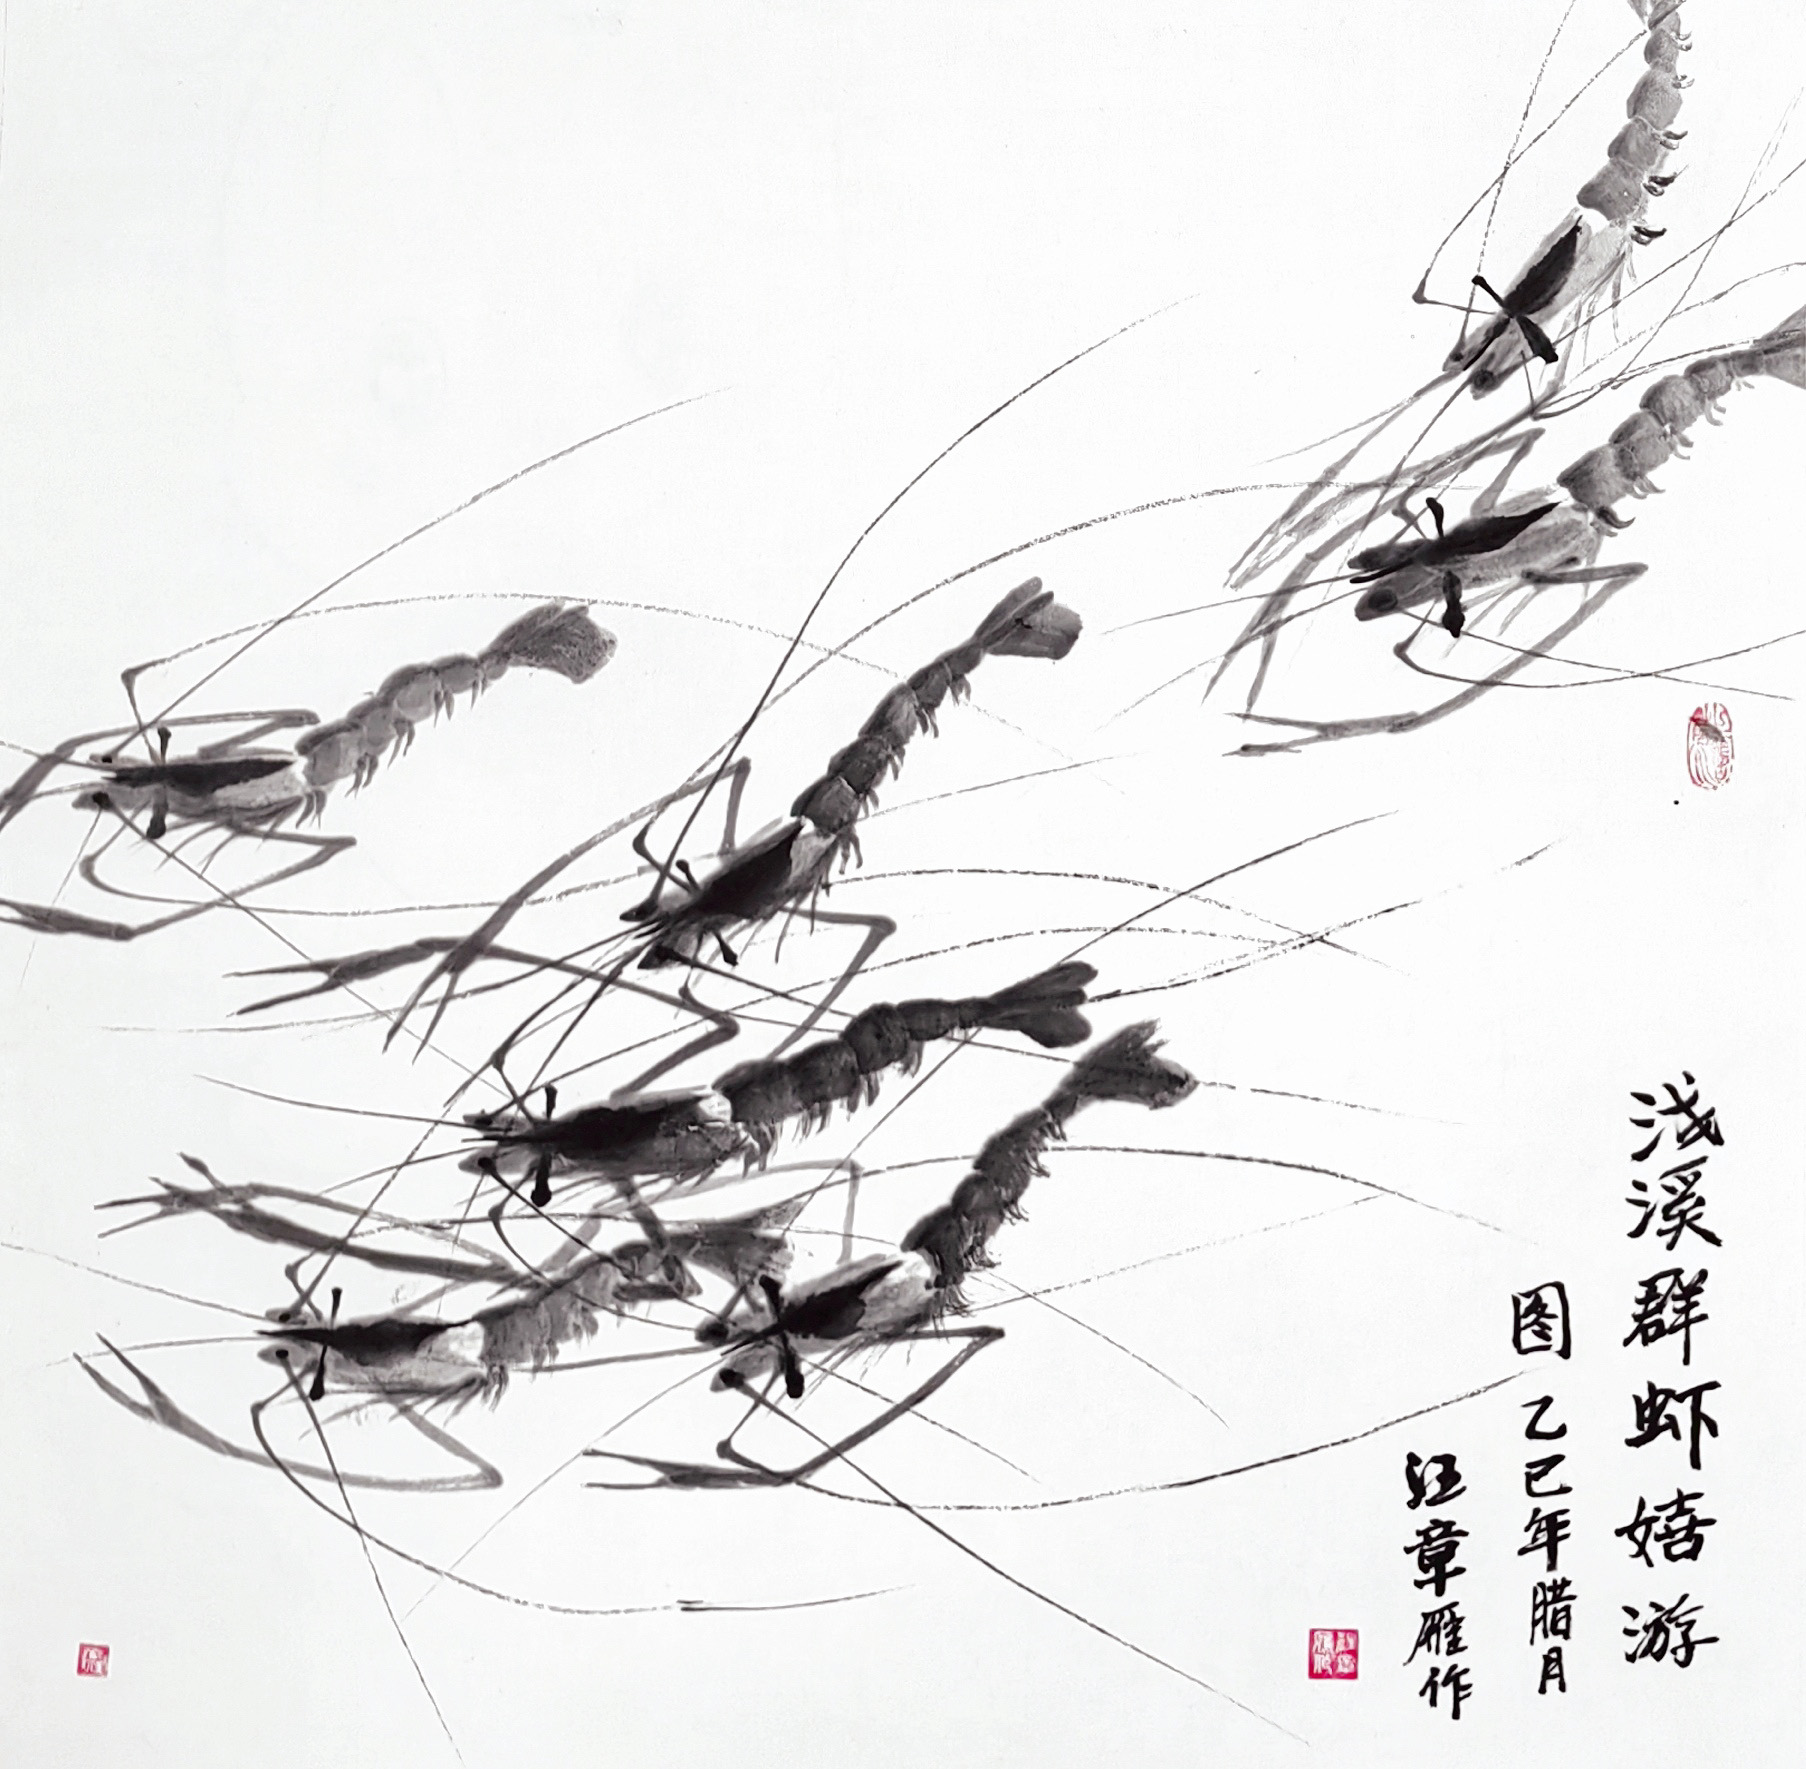 浅溪群虾嬉游
图 乙巳年腊月
汪章雁作